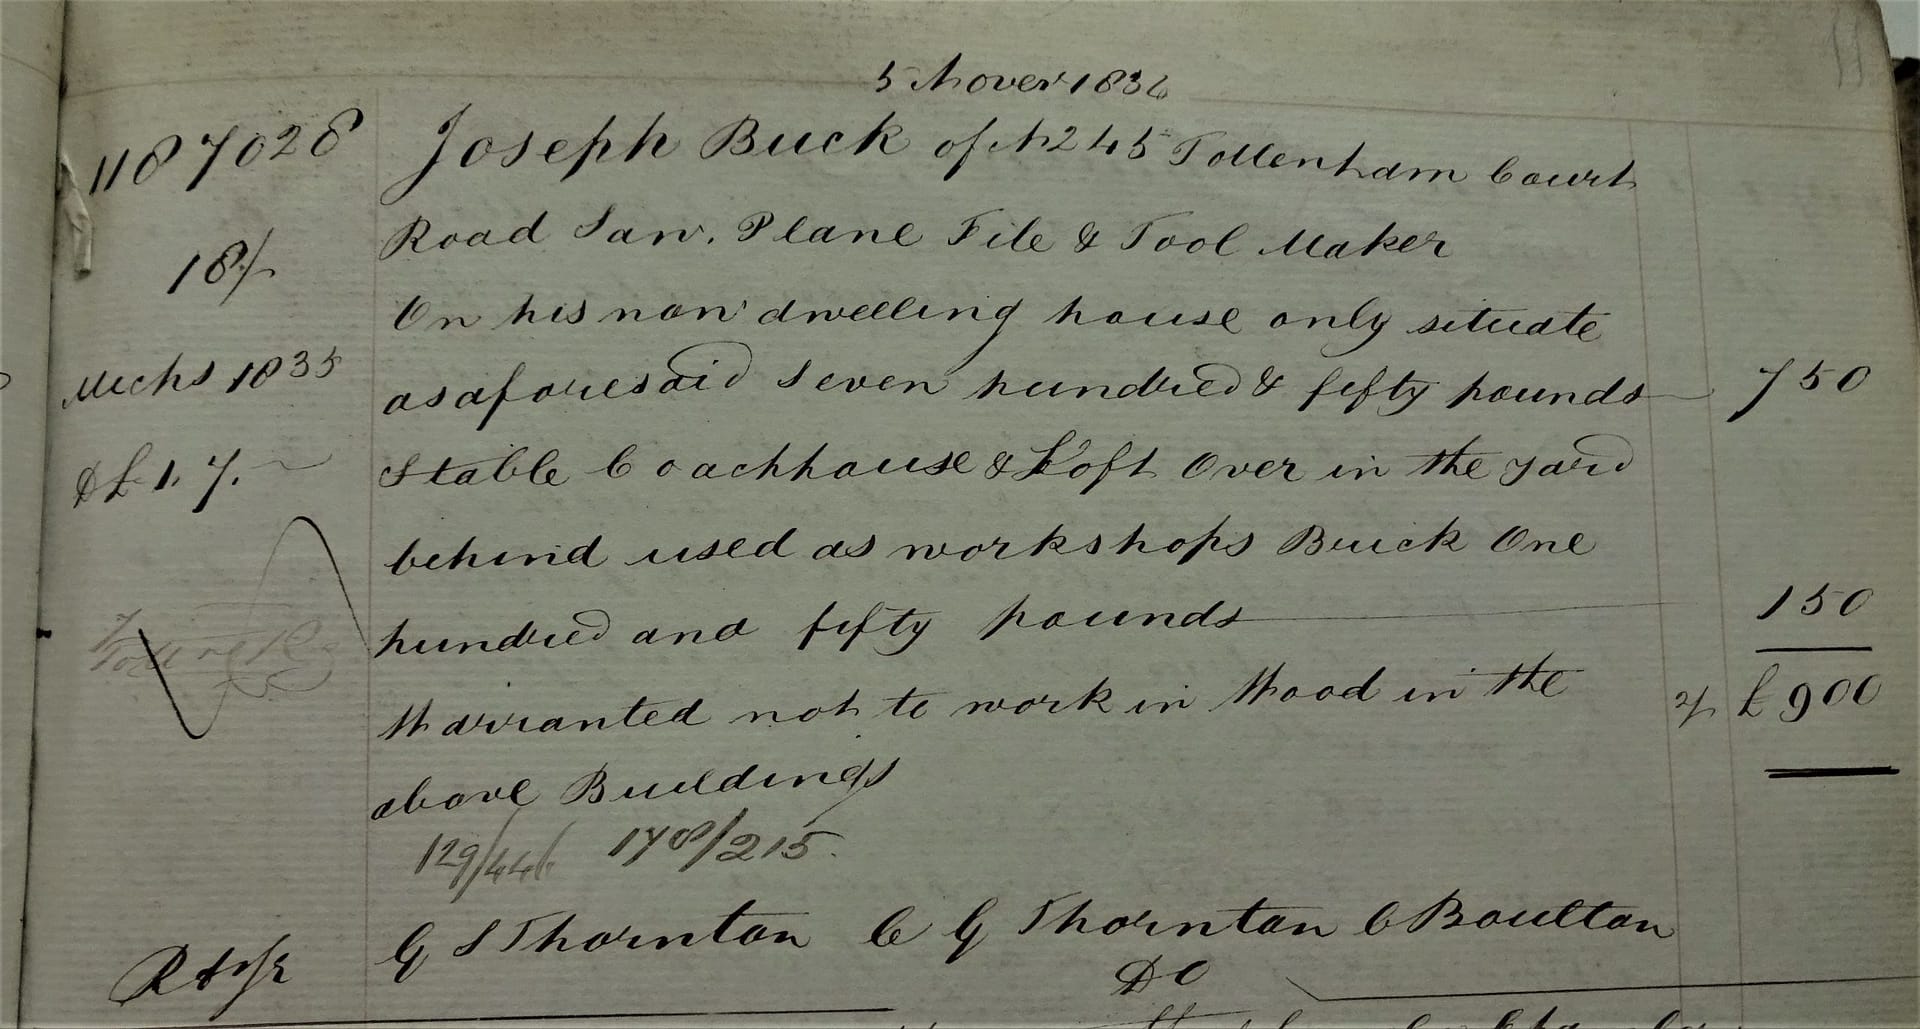 11
5 Nover 1834
1187028
Joseph Buck of N 245 Tottenham Court
Road Saw, Plane File & Tool Maker
18/-
On his now dwelling house only situate
Michs 1835
as aforesaid Seven hundred & fifty pounds 750
D £ 1. 7. -
Stable Coachhouse & Loft over in the yard
behind used as workshops Brick One
hundred and fifty pounds 150
Warranted not to work in Wood in the £ 900
above Buildings
129/446 178/215
G S Thornton C G Thornton C Boulton
DO